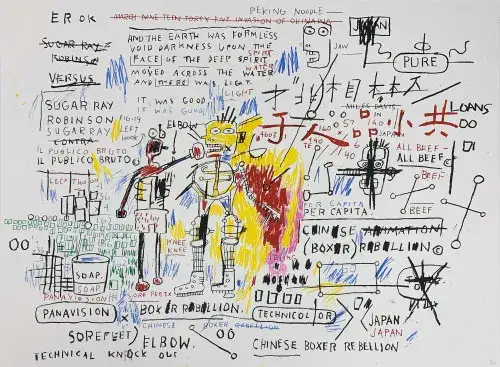 EROK
MARCH NINETEEN FORTY FIVE INVASION OF OKINAWA
PEKING NOODLE
JAPAN
JAW
PURE
SUGAR RAY
ROBINSON
VERSUS
AND THE EARTH WAS FORMLESS
VOID DARKNESS UPON THE
FACE OF THE DEEP SPIRIT
SPIRIT
MOVED ACROSS THE WATER
WATER
AND THERE WAS LIGHT.
LIGHT
IT WAS GOOD
IT WAS GOOD
SUGAR RAY
ROBINSON
SUGAR RAY
CONTRA
IL PUBLICO BRUTO
IL PUBLICO BRUTO©
LEFT
HOOK
ELBOW
MILES DAVIS
LOANS
于人品小共
JAPAN
ALL BEEF
ALL BEEF
BEEF
BEEF
PER CAPITA
PER CAPITA.
CHINESE ANIMATION
(BOXER) REBELLION©
KNEE
KNEE
SOAP.
SOAP
PANAVISION
SORE FEET
PANAVISION
BOXER REBELLION.
CHINESE BOXER REBELLION
TECHNICOLOR
JAPAN
JAPAN
SOREFEET
ELBOW.
TECHNICAL KNOCK OUT
CHINESE BOXER REBELLION